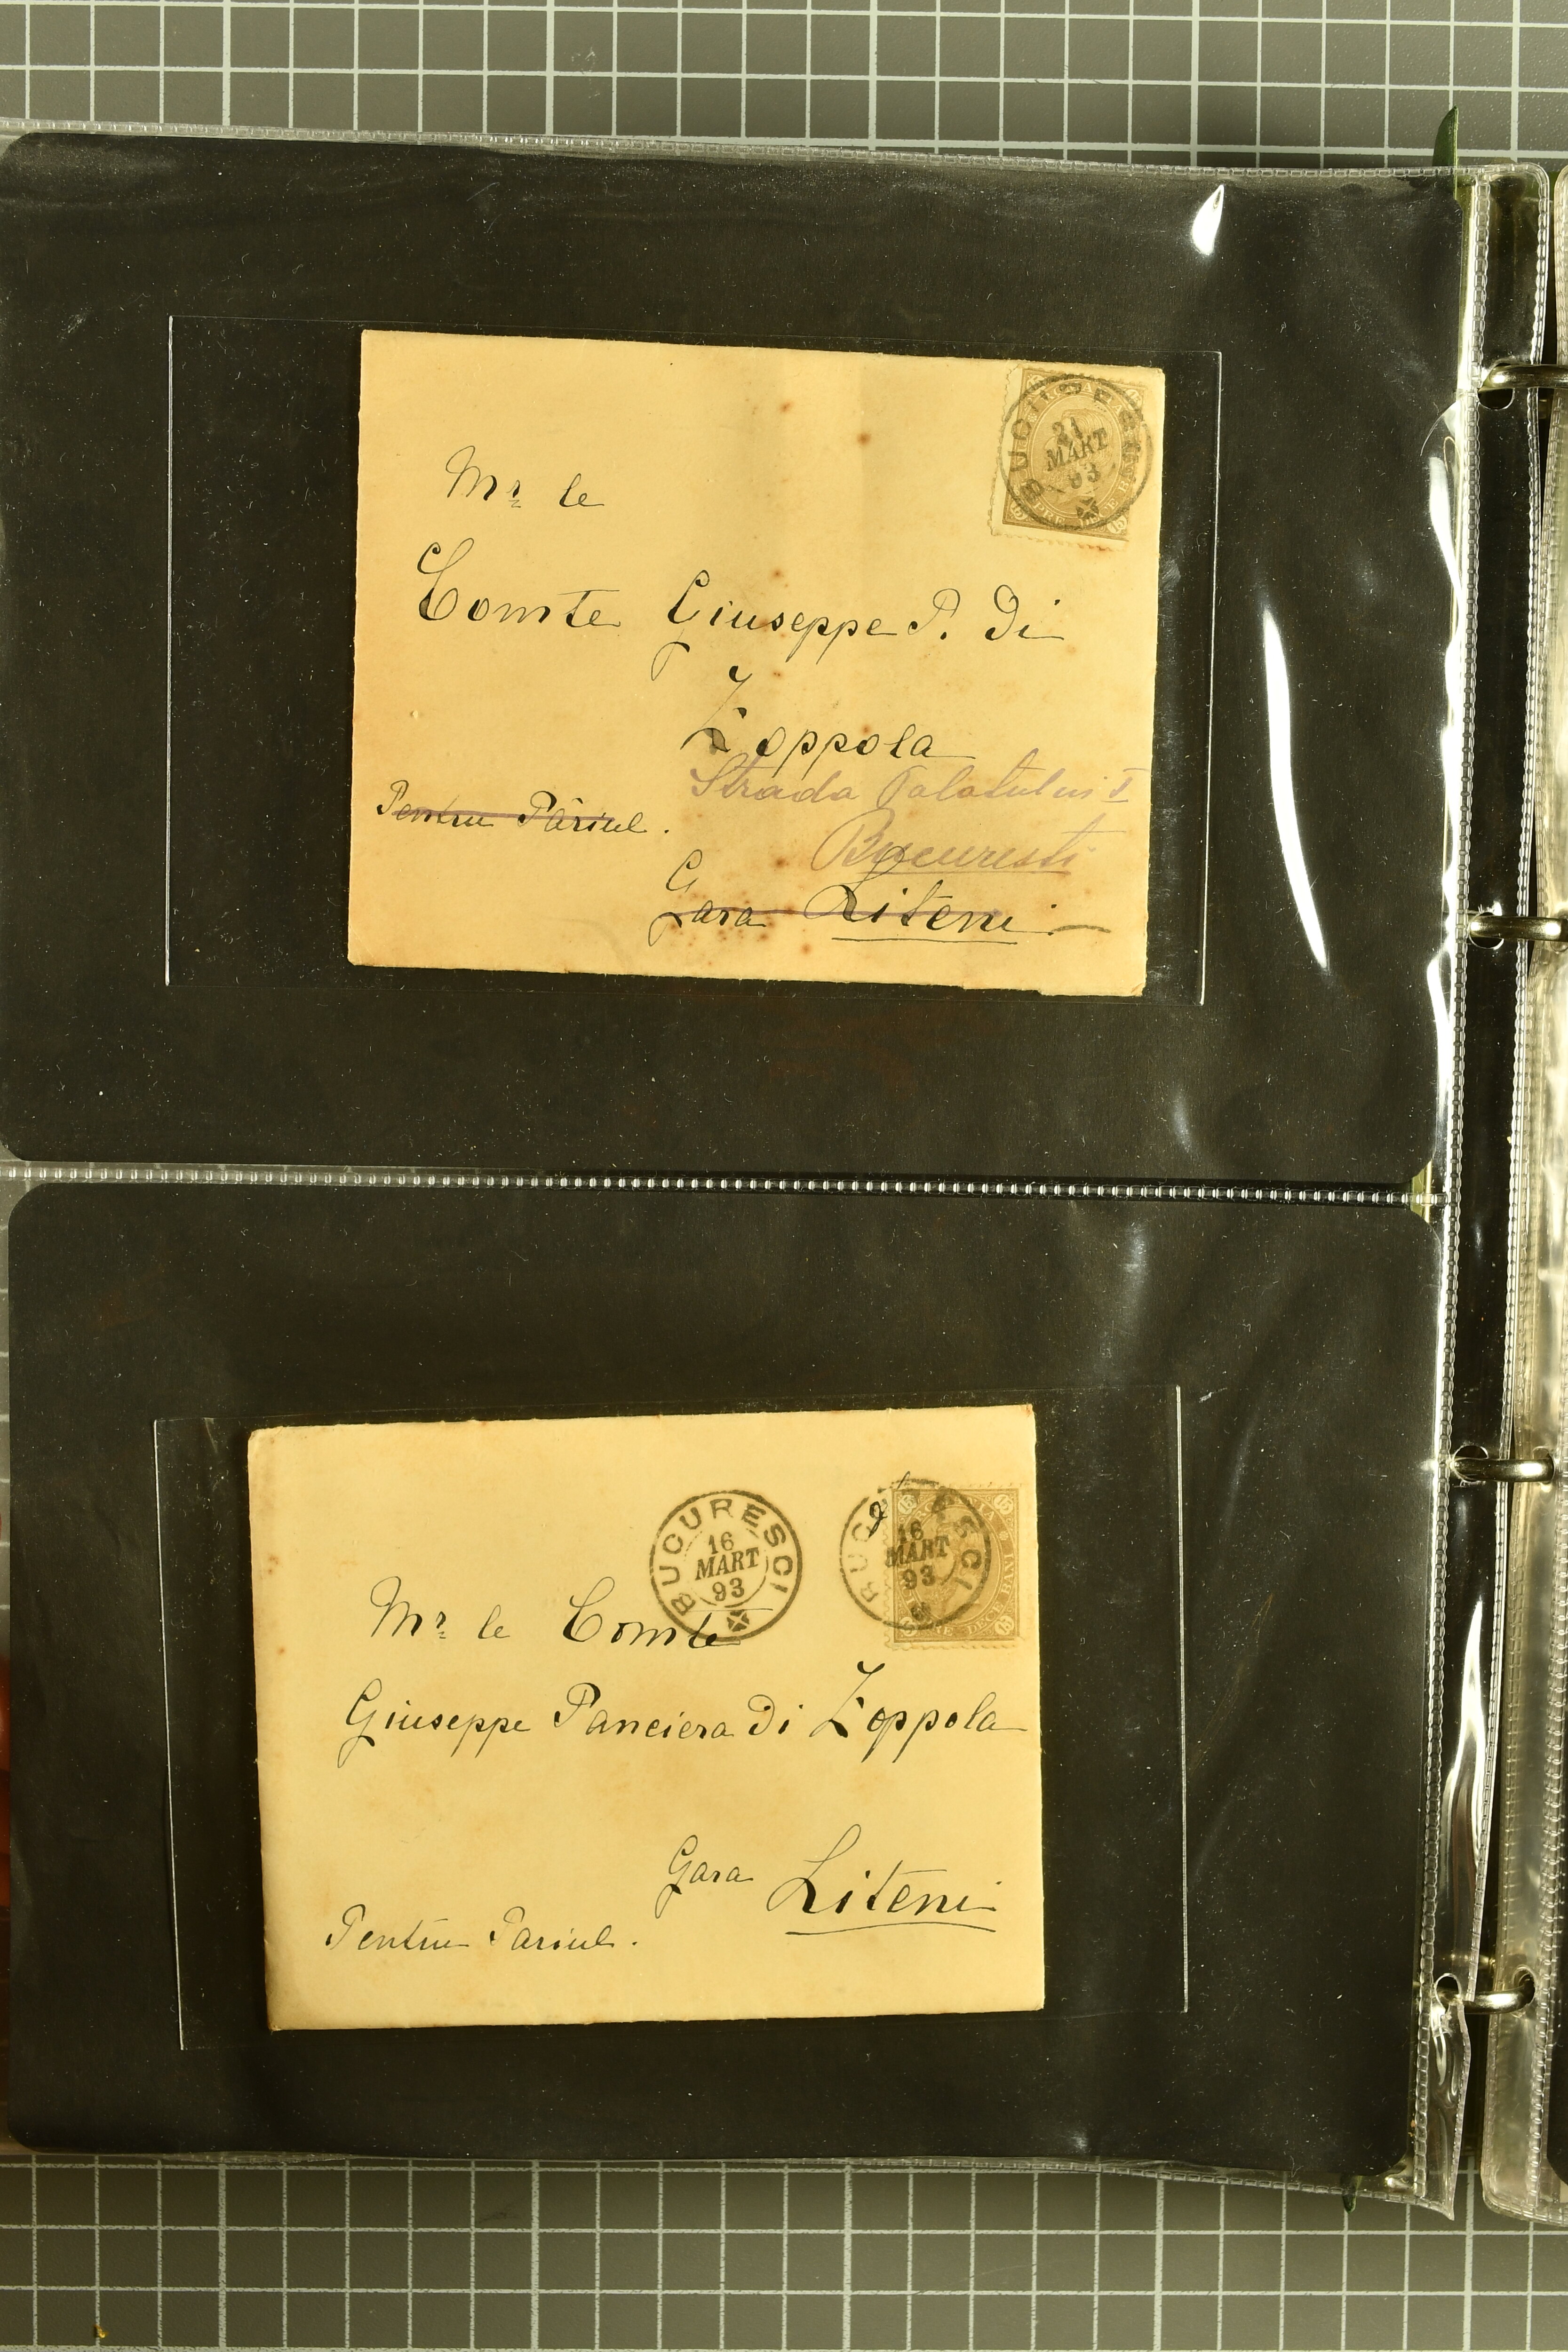 BUCURESCI
21
MART
93
15
Mr le
Comte Giuseppe P. Di
Zoppola
Strada Palatului I
Bucuresti
Pentru Pariul.
Gara Liteni.
BUCURESCI
16
MART
93
BUCURESCI
16
MART
93
15
15
15
Mr le Comte
Giuseppe Panciera Di Zoppola
Gara Liteni
Pentru Pariul.